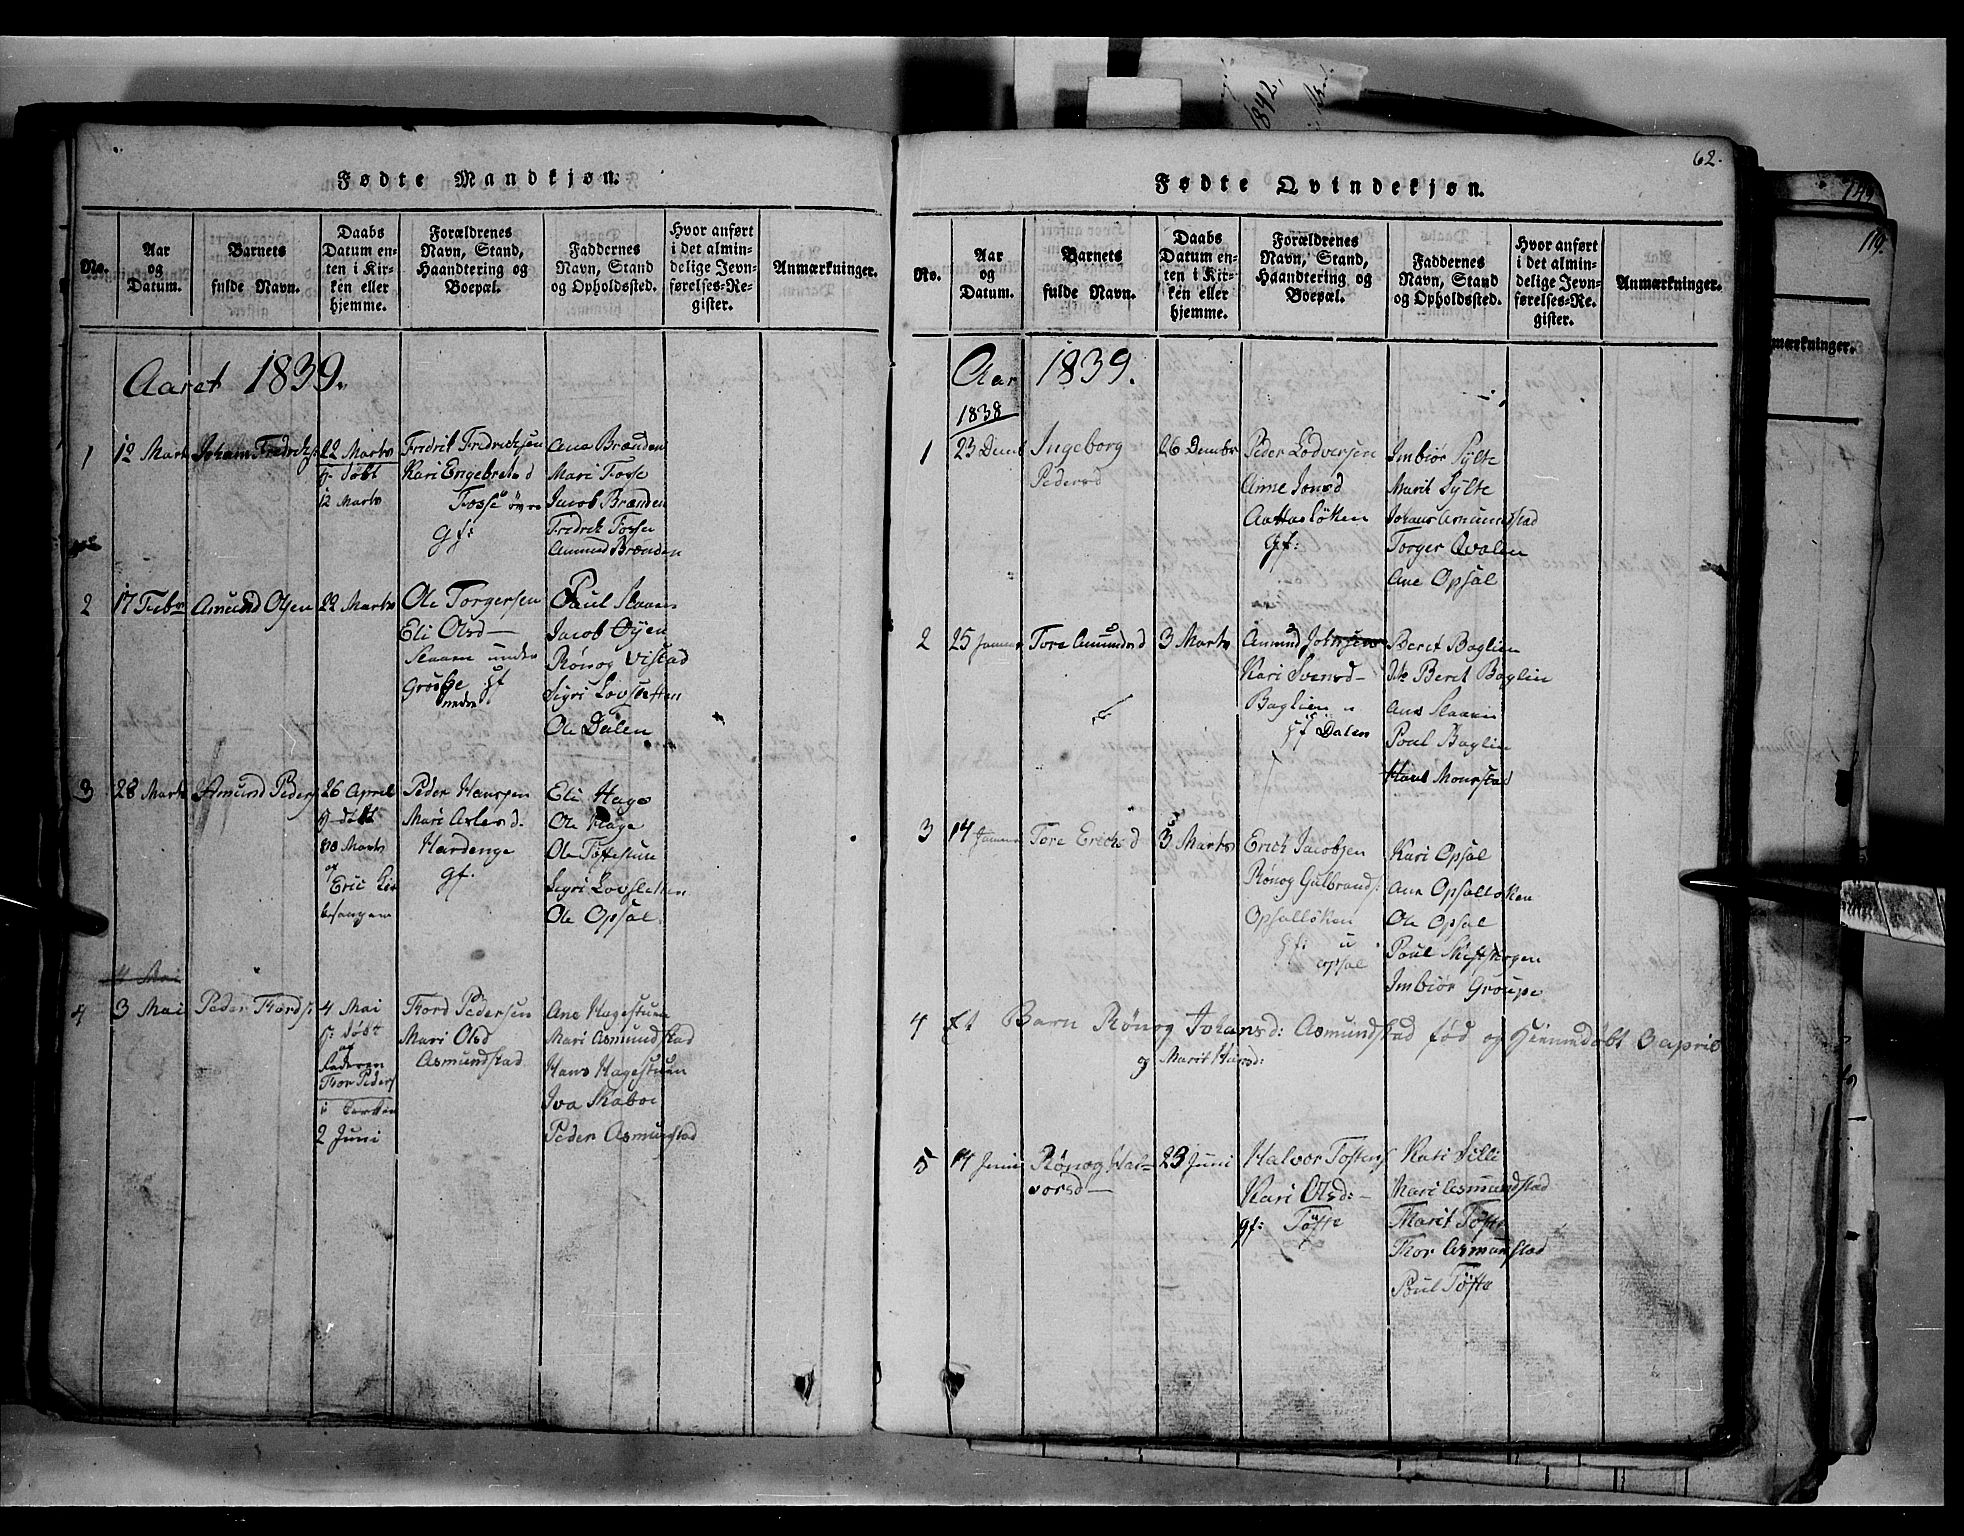 Fødte Mandkjøn.
No.
Aar
og
Datum.
Barnets
fulde Navn.
Daabs
Datum en-
ten i Kir-
ken eller
hjemme.
Forældrenes
Navn, Stand,
Haandtering og
Boepæl.
Faddernes
Navn, Stand
og Opholdssted.
Hvor anført
i det almin-
delige Jevn-
førelses-Re-
gister.
Anmærkninger.
Aaret 1839.
1
12 Marts
Johan Fredriks:
22 Marts
hj. døbt
12 Marts
Fredrik Fredricksen
Kari Engebretsd
Fosse øvre
gf:
Ane Brænden
Mari Fosse
Jacob Brænden
Fredrik Fosse
Amund Brænden
2
17 Febr
Amund Olsen
22 Marts
Ole Torgersen
Eli Olsd
Slaaen under
gf
nedre
Paul Slaaen
Jacob Øyen
Rønog Vistad
Sigri Lovsletten
Ole Dalen
3
28 Marts
Amund Peders
26 April
hj. døbt
Marts
og
Eric
Peder Hansen
Mari
Hardenge
gf.
Eli Hage
Ole Hage
Ole Tøftestue
Sigri Lovsletten
Ole Opsal
4 Mai
4
3 Mai
Peder Thords:
4 Mai
hj. døbt
af
Faderen
Thor Peders
i Kirken
2 Juni
Thord Pedersen
Mari Olsd
Asmundstad
Ane Hagestuen
Mari Asmundstad
Hans Hagestuen
Iva Skaboe
Peder Asmundstad
62.
Fødte Qvindekjøn.
No.
Aar
og
Datum.
Barnets
fulde Navn.
Daabs
Datum en-
ten i Kir-
ken eller
hjemme.
Forældrenes
Navn, Stand,
Haandtering og
Boepæl.
Faddernes
Navn, Stand
og Opholdssted.
Hvor anført
i det almin-
delige Jevn-
førelses-Re-
gister.
Anmærkninger.
Aar 1839.
1838
1
23 Decmb
Ingeborg
Pedersd
26 Decmbr
Peder Lodversen
Anne Jonsd
Aattasløken
gf:
Imbiør Sylte
Marit Sylte
Johans Asmundstad
Torger Qvalen
Ane Opsal
2
25 Januar
Tore Amundsd
3 Marts
Amund Johnsen
Kari Svensd
Baglien
gf Dalen
Beret Baglien
Beret Baglin
Ane Slaaen
Poul Baglin
3
14 Januar
Tore Ericksd
3 Marts
Erick Jacobsen
Rønog Gulbrands:
Opsalløken
gf: u
opsal
Kari Opsal
Ane Opsalløken
Ole Opsal
Poul Skiftskogen
Imbiør Groupe
4 Et Barn Rønog Johansd: Asmundstad fød og Hiemmdøbt 3 april
og Marit Hansd:
5
14 Juni
Rønog Hal-
vorsd
23 Juni
Halvor Tostens
Kari Olsd:
gf: Tøfte
Kari Lilli
Mari Asmundstad
Marit Tøfte
Thor Asmundstad
Poul Tøfte
1842.
119.
mærkninger.